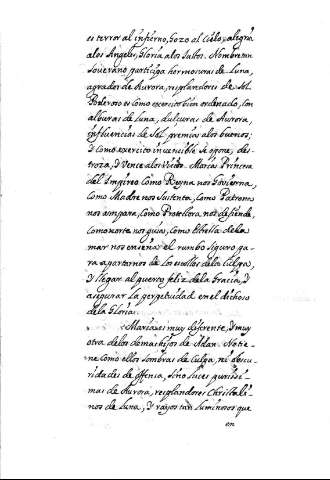 es terror al infierno, Gozo al Cielo, alegria
alos Angeles, Gloria alos Justos. Nombre tan
soverano participa hermosuras de Luna,
agrados de Aurora, resplandores de Sol.
Poderoso es como exercito bien ordenado, con
alburas de Luna, dulçuras de Aurora,
influencias de Sol premia alos buenos;
Y como exercito invencible se opone, des-
troza, Y Vence alos Vicios. Maria Princesa
del Impireo Como Reyna nos Govierna,
Como Madre nos sustenta, Como Patrona
nos ampara, Como Protectora, nos defiende,
Como norte nos guia, Como Estrella de la
mar nos enseña el rumbo siguro pa-
ra apartarnos de los escollos de la Culpa,
Y llegar al puerto feliz de la Gracia, Y
asegurar la perpetuidad en el dichoso
de la Gloria.
Maria es mui diferente, Y muy
otra de los demas hijos de Adan. No tie-
ne Como ellos sombras de Culpa, ni obscu-
ridades de offensa, sino luces purissi-
mas de Aurora, resplandores Christali-
nos de Luna, Y rayos tan luminosos que
en